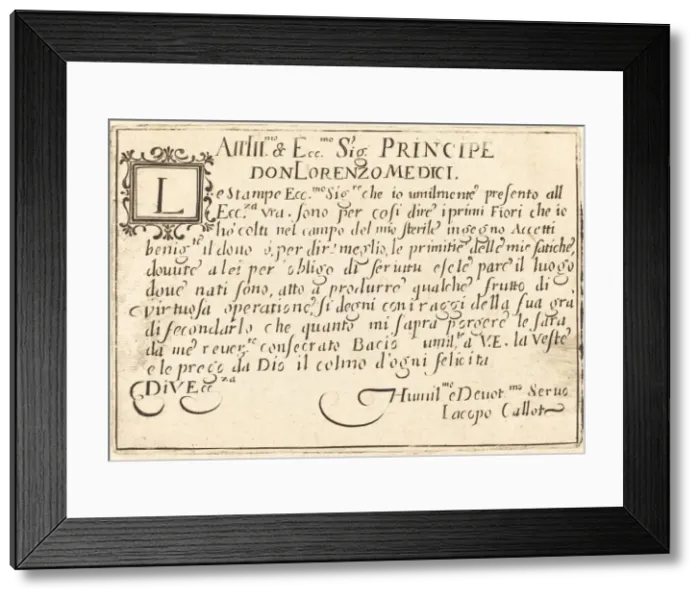 All Ill.mo & Ecc.mo Sig. PRINCIPE
DON LORENZO MEDICI.
Le Stampe Ecc.mo Sig.re che io umilmente presento all
Ecc.za vra. sono per cosi dire i primi Fiori che io
hò colti nel campo del mio sterile ingegno Accetti
benig.te il dono ò, per dir meglio, le primitie delle mie fatiche
douute a lei per obligo di seruitu e se le pare il luogo
doue nati sono, atto a produrre qualche frutto di
virtuosa operatione, si degni con i raggi della sua gra
di fecondarlo che quanto mi saprà porgere le sarà
da me reuer.te consecrato Bacio umil.te a V.E. la Veste
e le prego da Dio il colmo d'ogni felicita
Di V Ecc.za
Humil.mo e Deuot.mo Seruo
Iacopo Callot